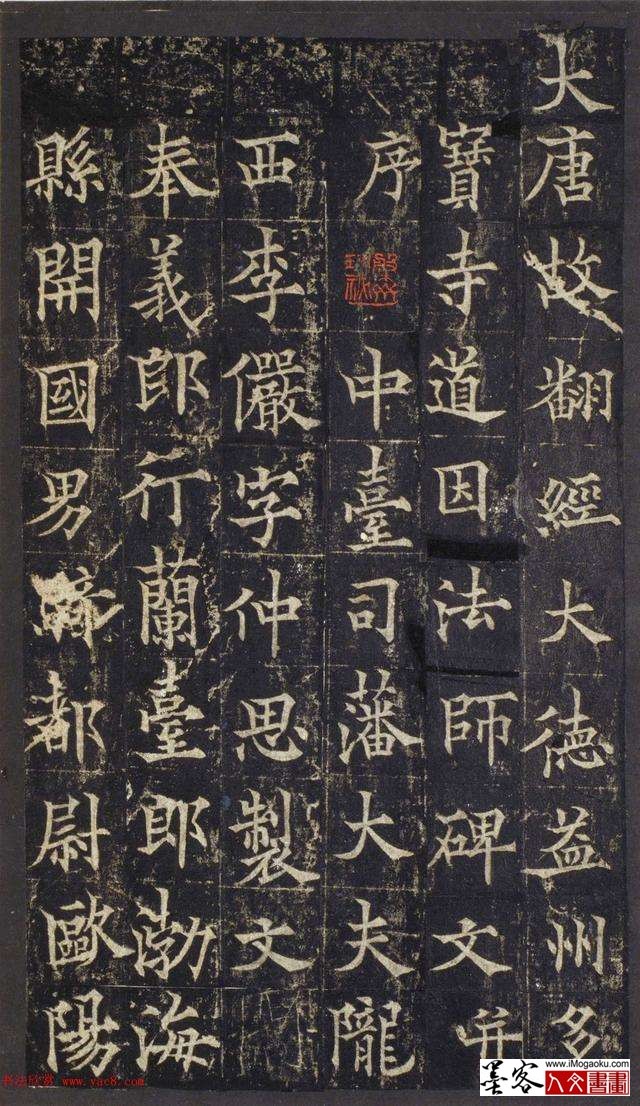 大唐故翻經大德益州多
寶寺道因法師碑文并
序
中臺司藩大夫隴
西李儼字仲思製文
奉義郎行蘭臺郎渤海
縣開國男 都尉歐陽
书法欣赏 www.yac8.com
www.iMogaoku.com
墨客
人文書畫